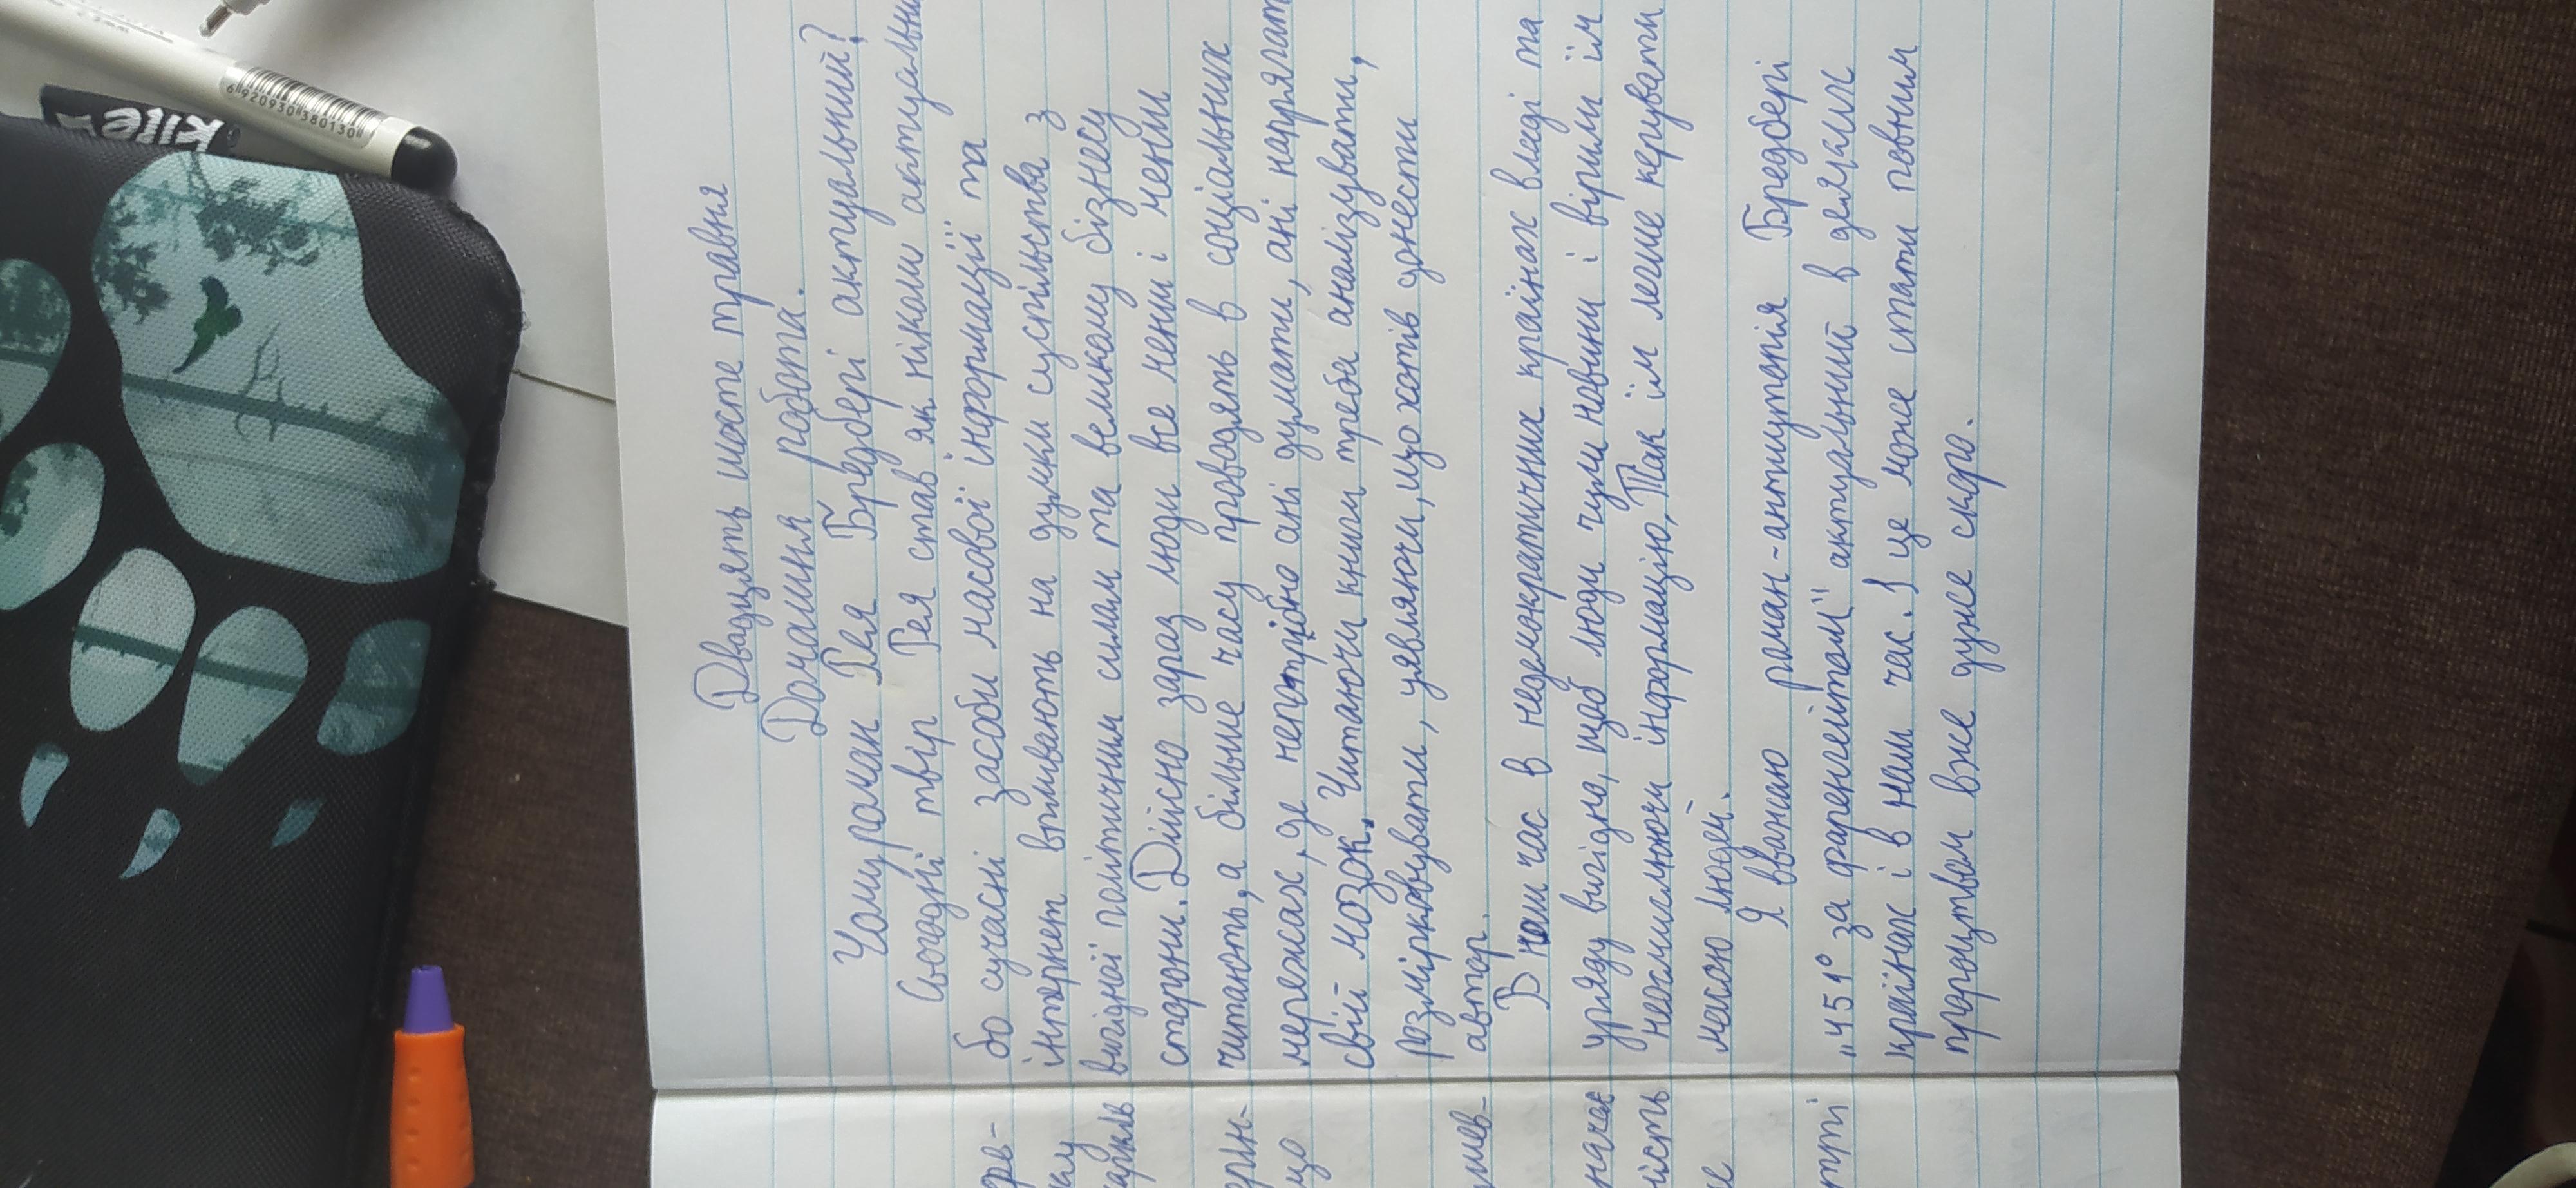 Двадцять шосте травня
Домашня робота.
Чому роман Рея Бредбері актуальний?
Сьогодні твір Рея став як ніколи актуальни
бо сучасні засоби масової інформації та
інтернет впливають на думки суспільства з
вигідної політичним силам та великому бізнесу
сторони. Дійсно зараз люди все менш і менш
читають, а більше часу проводять в соціальних
мережах, де непотрібно ані думати, ані напрягат
свій мозок. Читаючи книги треба аналізувати,
розмірковувати, уявляючи, що хотів донести
автор.
В наш час в недемократичних країнах владі та
уряду вигідно, щоб люди чули новини і вірили їм
неосмислюючи інформацію. Так їм легше керувати
масою людей.
Я вважаю роман-антиутопія Бредбері
„451° за фаренгейтом" актуальний в деяких
країнах і в наш час. І це може стати повним
пророцтвом вже дуже скоро.
рв-
му
ерін-
що
шев-
начає
ність
е
тті
kite
6 920930 380130